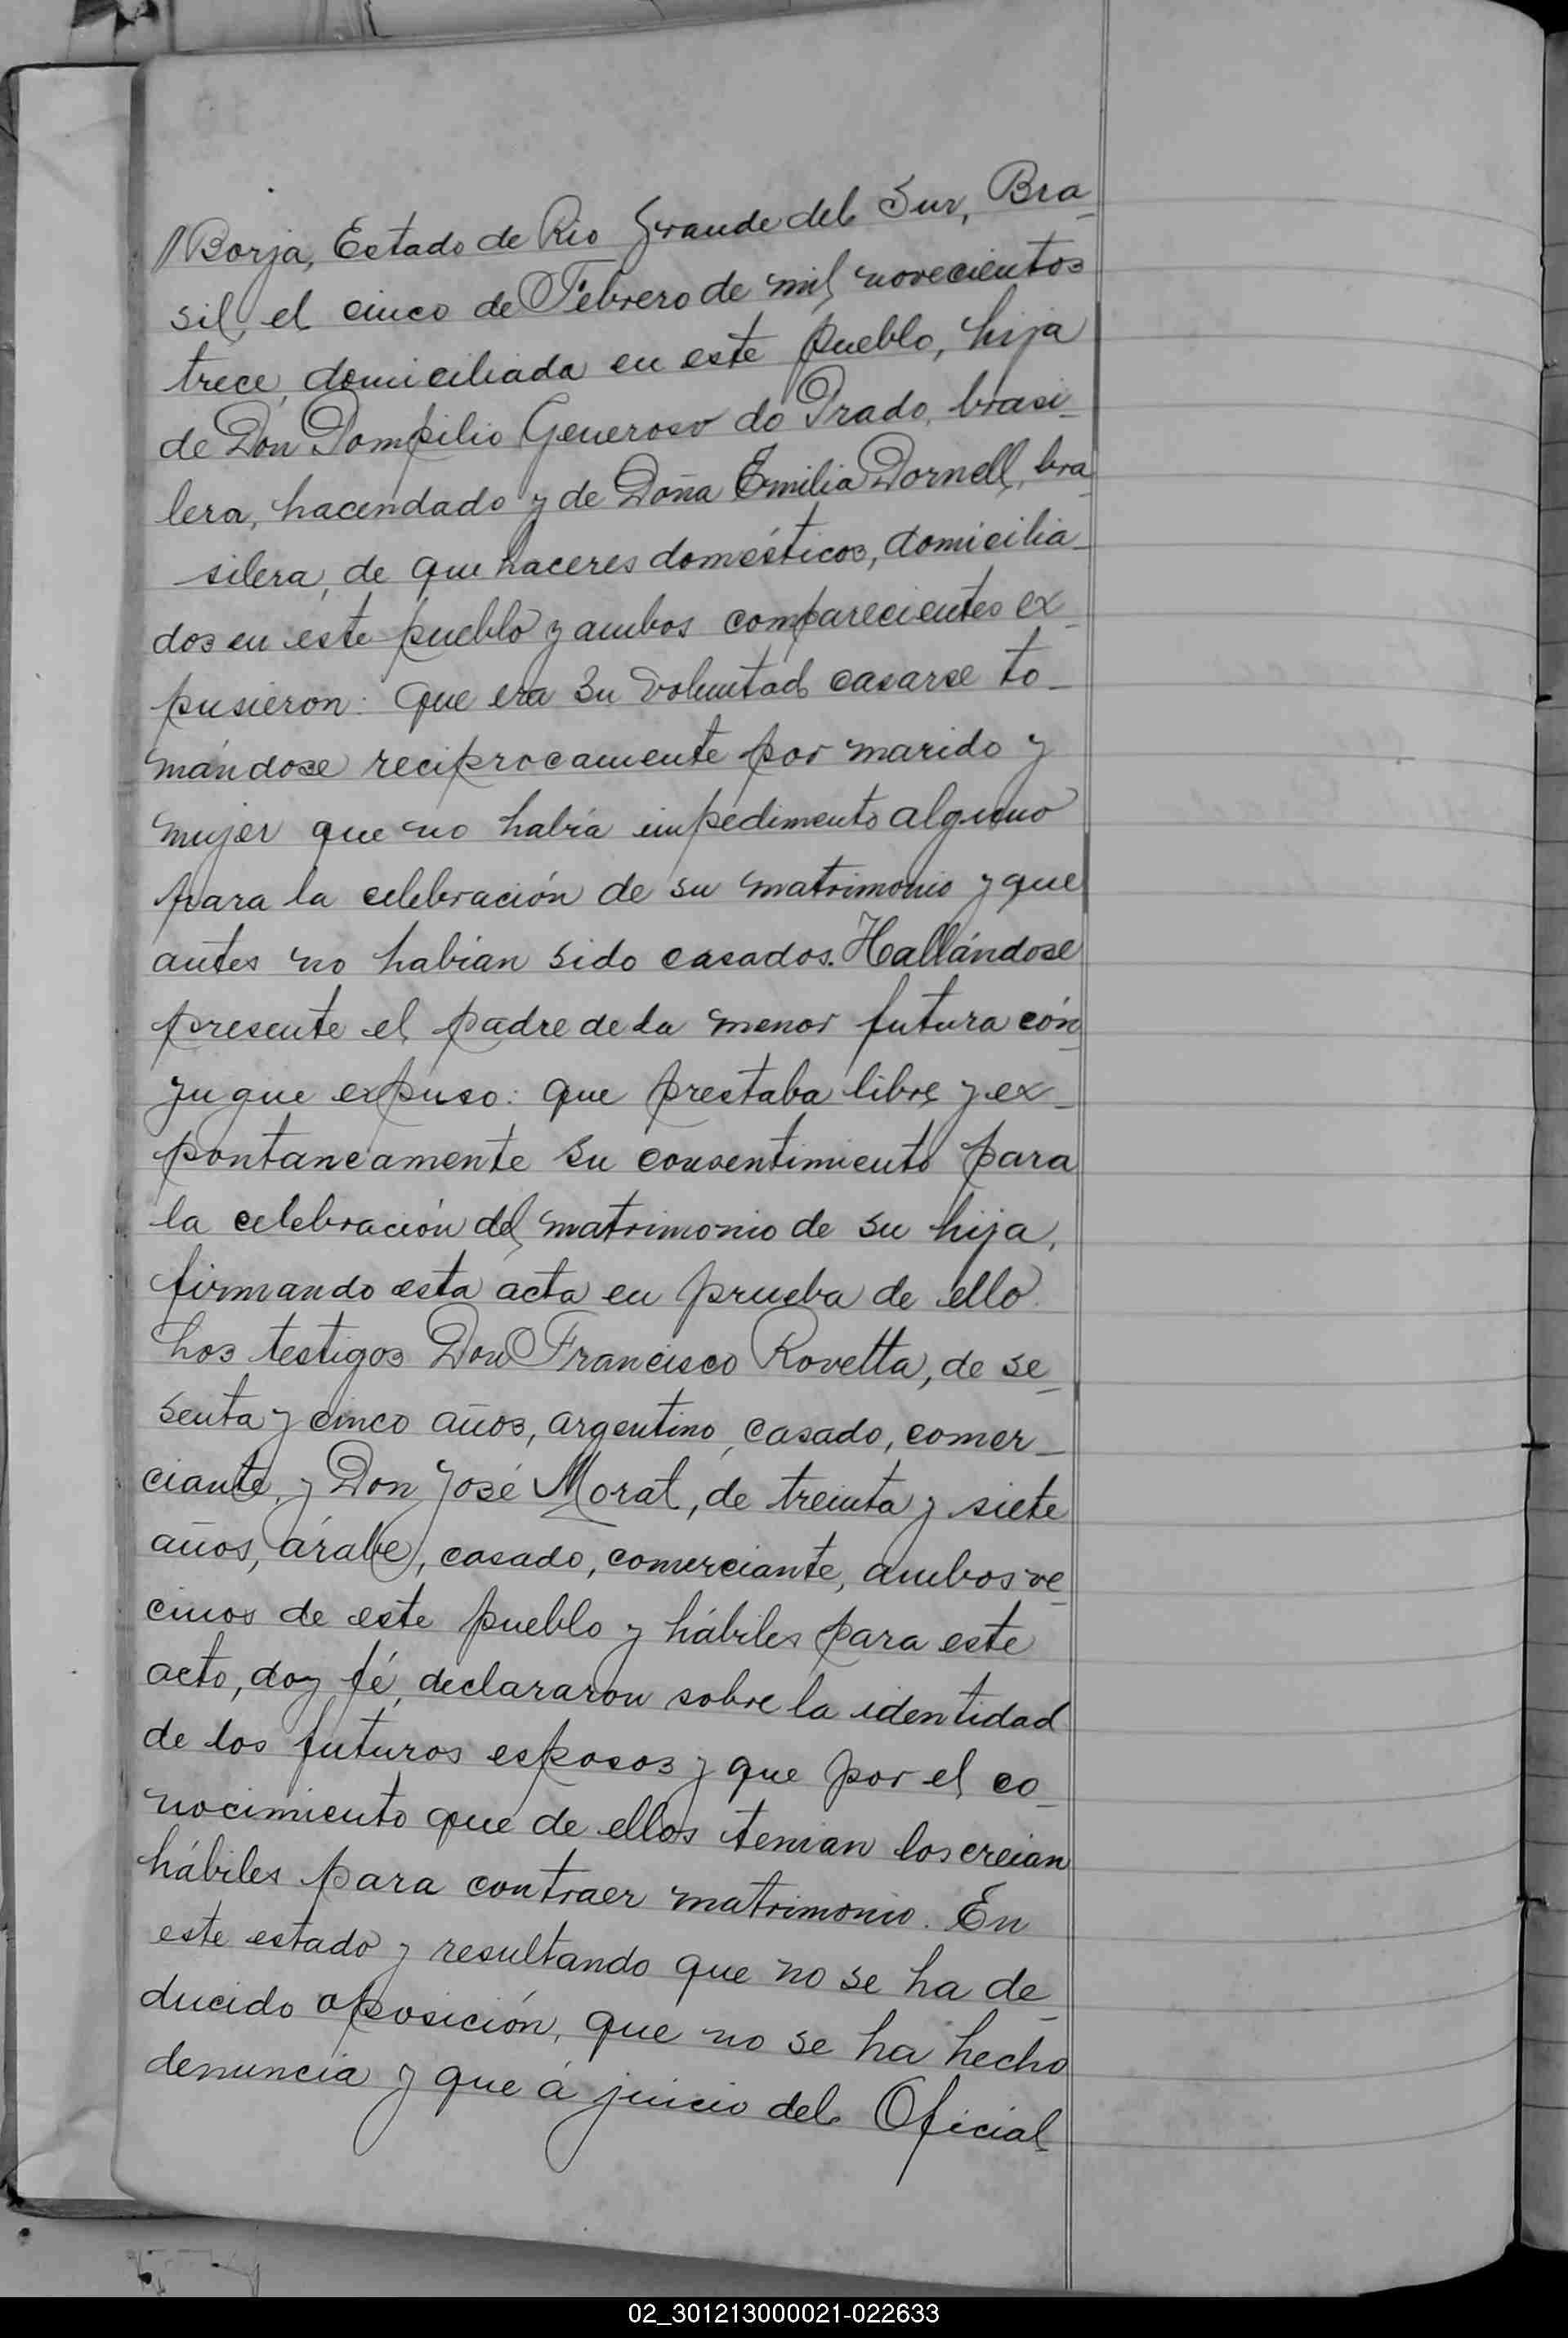 //Borja, Estado de Rio Grande del Sur, Bra-
sil, el cinco de Febrero de mil novecientos
trece, domiciliada en este pueblo, hija
de Don Pompilio Generoso do Prado, brasi-
lera, hacendado y de Doña Emilia Dornell, bra-
silera, de que haceres domésticos, domicilia-
dos en este pueblo y ambos comparecientes ex-
pusieron: Que era su voluntad casarse to-
mándose reciprocamente por marido y
mujer que no habia impedimento alguno
para la celebración de su matrimonio y que
antes no habian sido casados. Hallándose
presente el padre de la menor futura cón-
yugue expuso: que prestaba libre y ex-
pontaneamente su consentimiento para
la celebración del matrimonio de su hija,
firmando esta acta en prueba de ello.
Los testigos Don Francisco Rovetta, de se-
senta y cinco años, argentino, casado, comer-
ciante, y Don José Morat, de treinta y siete
años, árabe, casado, comerciante, ambos ve-
cinos de este pueblo y hábiles para este
acto, doy fé, declararon sobre la identidad
de los futuros esposos y que por el co-
nocimiento que de ellos tenian los creian
hábiles para contraer matrimonio. En
este estado y resultando que no se ha de-
ducido oposición, que no se ha hecho
denuncia y que á juicio del Oficial
02_301213000021-022633